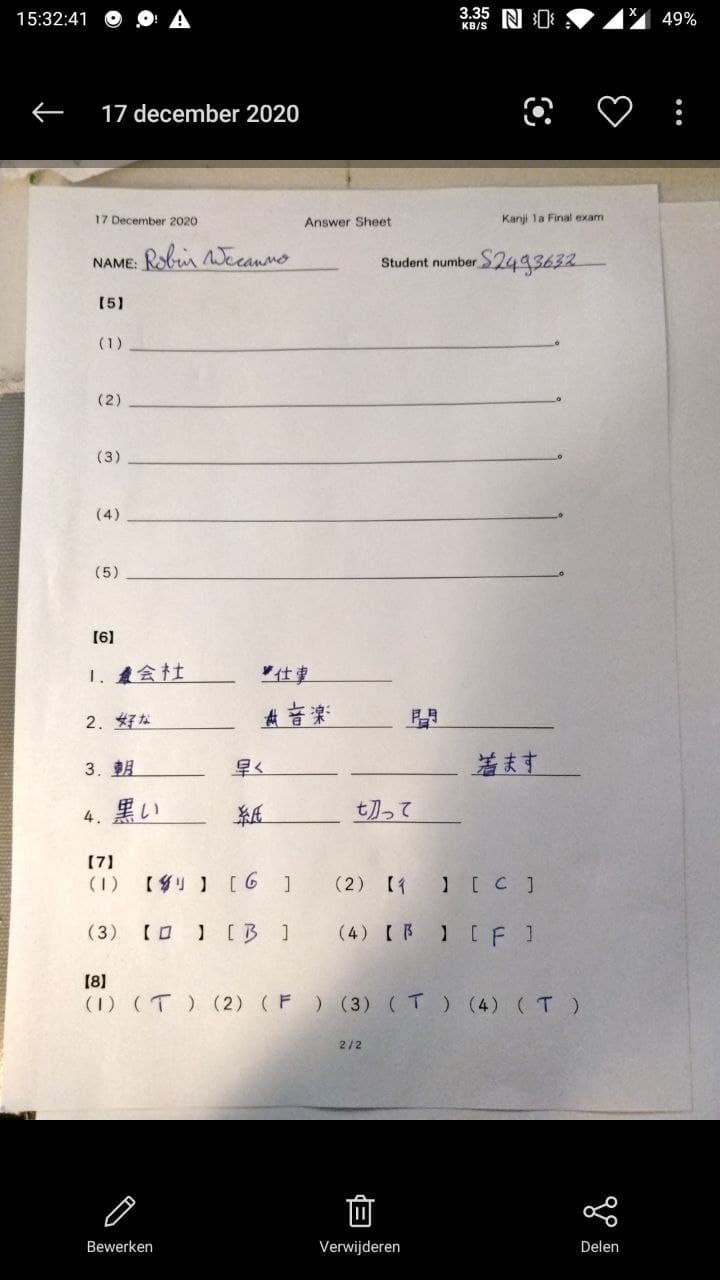 15:32:41 3.35 KB/S 49%
17 december 2020
17 December 2020 Answer Sheet Kanji 1a Final exam
NAME: Robin Student number S2493632
【5】
(1) 。
(2) 。
(3) 。
(4) 。
(5) 。
【6】
1. 会社 仕事
2. 好な 音楽 聞
3. 朝 早く 着ます
4. 黒い 紙 切って
【7】
(1) 【刂】 [G] (2) 【彳】 [C]
(3) 【口】 [B] (4) 【阝】 [F]
【8】
(1) (T) (2) (F) (3) (T) (4) (T)
2/2
Bewerken Verwijderen Delen